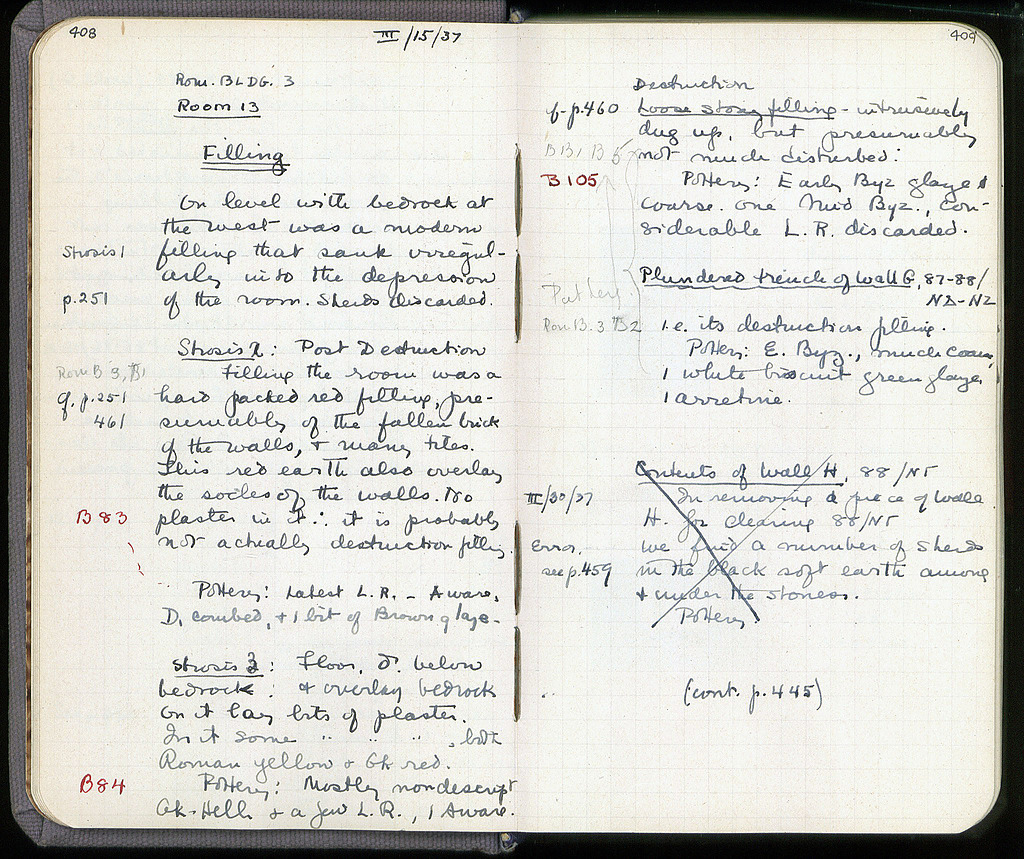 408
III/15/37
Rom. BLDG. 3
Room 13
Filling
On level with bedrock at
the west was a modern
Strosis 1
filling that sank irregul-
arly into the depression
p.251
of the room. Sherds discarded.
Strosis 2: Post Destruction
Rom B 3, B1
Filling the room was a
cf. p.251
hard packed red filling, pre-
461
sumably of the fallen brick
of the walls, + many tiles.
This red earth also overlay
the socles of the walls. No
B 83
plaster in it ∴ it is probably
not actually destruction filling.
Pottery: Latest L.R. - A ware,
D, combed, + 1 bit of Brown glaze.
Strosis 3: Floor, below
bedrock: + overlay bedrock
On it lay bits of plaster.
In it some " " " , both
Roman yellow + Gk red.
B84
Pottery: Mostly nondescript
Gk-Hell. + a few L.R., 1 A ware.
409
Destruction
cf. p.460
Loose stony filling - intrusively
dug up, but presumably
B B1 B 5
not much disturbed:
B 105
Pottery: Early Byz glaze +
coarse. One Mid Byz., con-
siderable L.R. discarded.
Plundered trench of Wall G, 87-88/
Pottery
Rom B. 3 B2
i.e. its destruction filling.
Pottery: E. Byz., much coarse,
1 white biscuit green glaze,
1 arretine.
Contents of Wall H, 88/
III/30/37
In removing a piece of Wall
H. for clearing 88/
Error.
we find a number of sherds
see p.459
in the black soft earth among
+ under the stones.
Pottery
(cont. p.445)